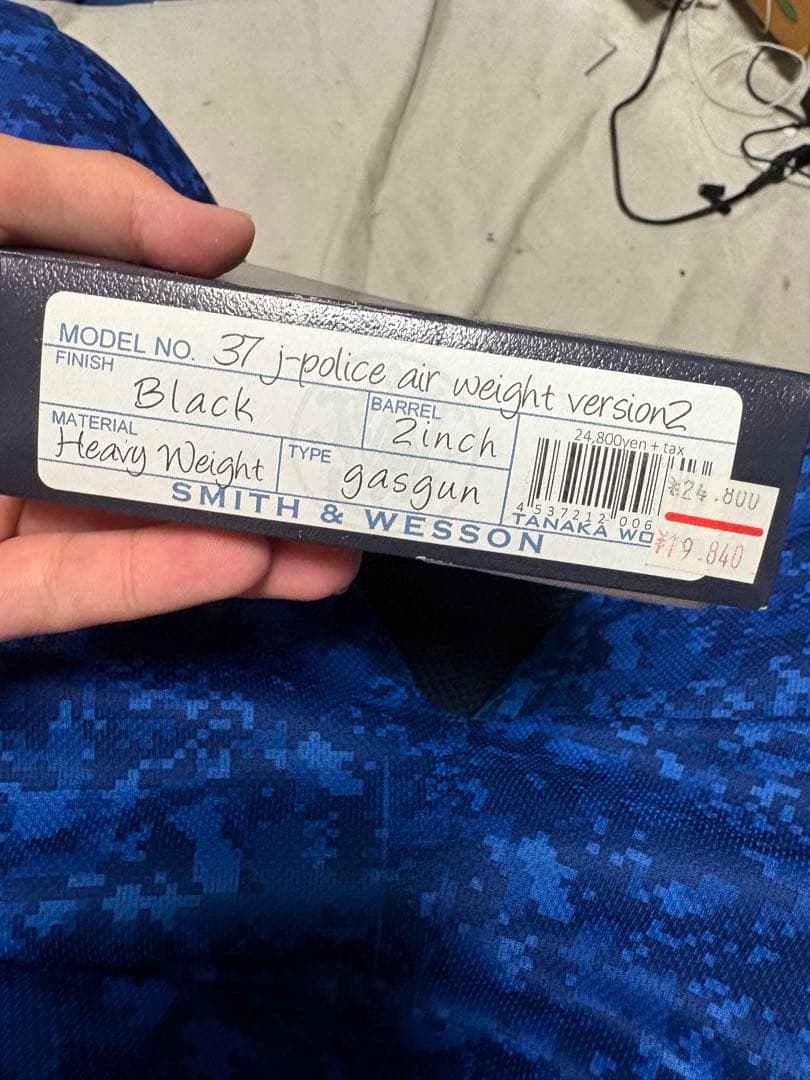 MODEL NO. 37 j-police air weight version2
FINISH Black
BARREL 2inch
MATERIAL Heavy Weight
TYPE gasgun
24,800yen + tax
4 537212 006
SMITH & WESSON
TANAKA WO
¥24.800
¥19.840